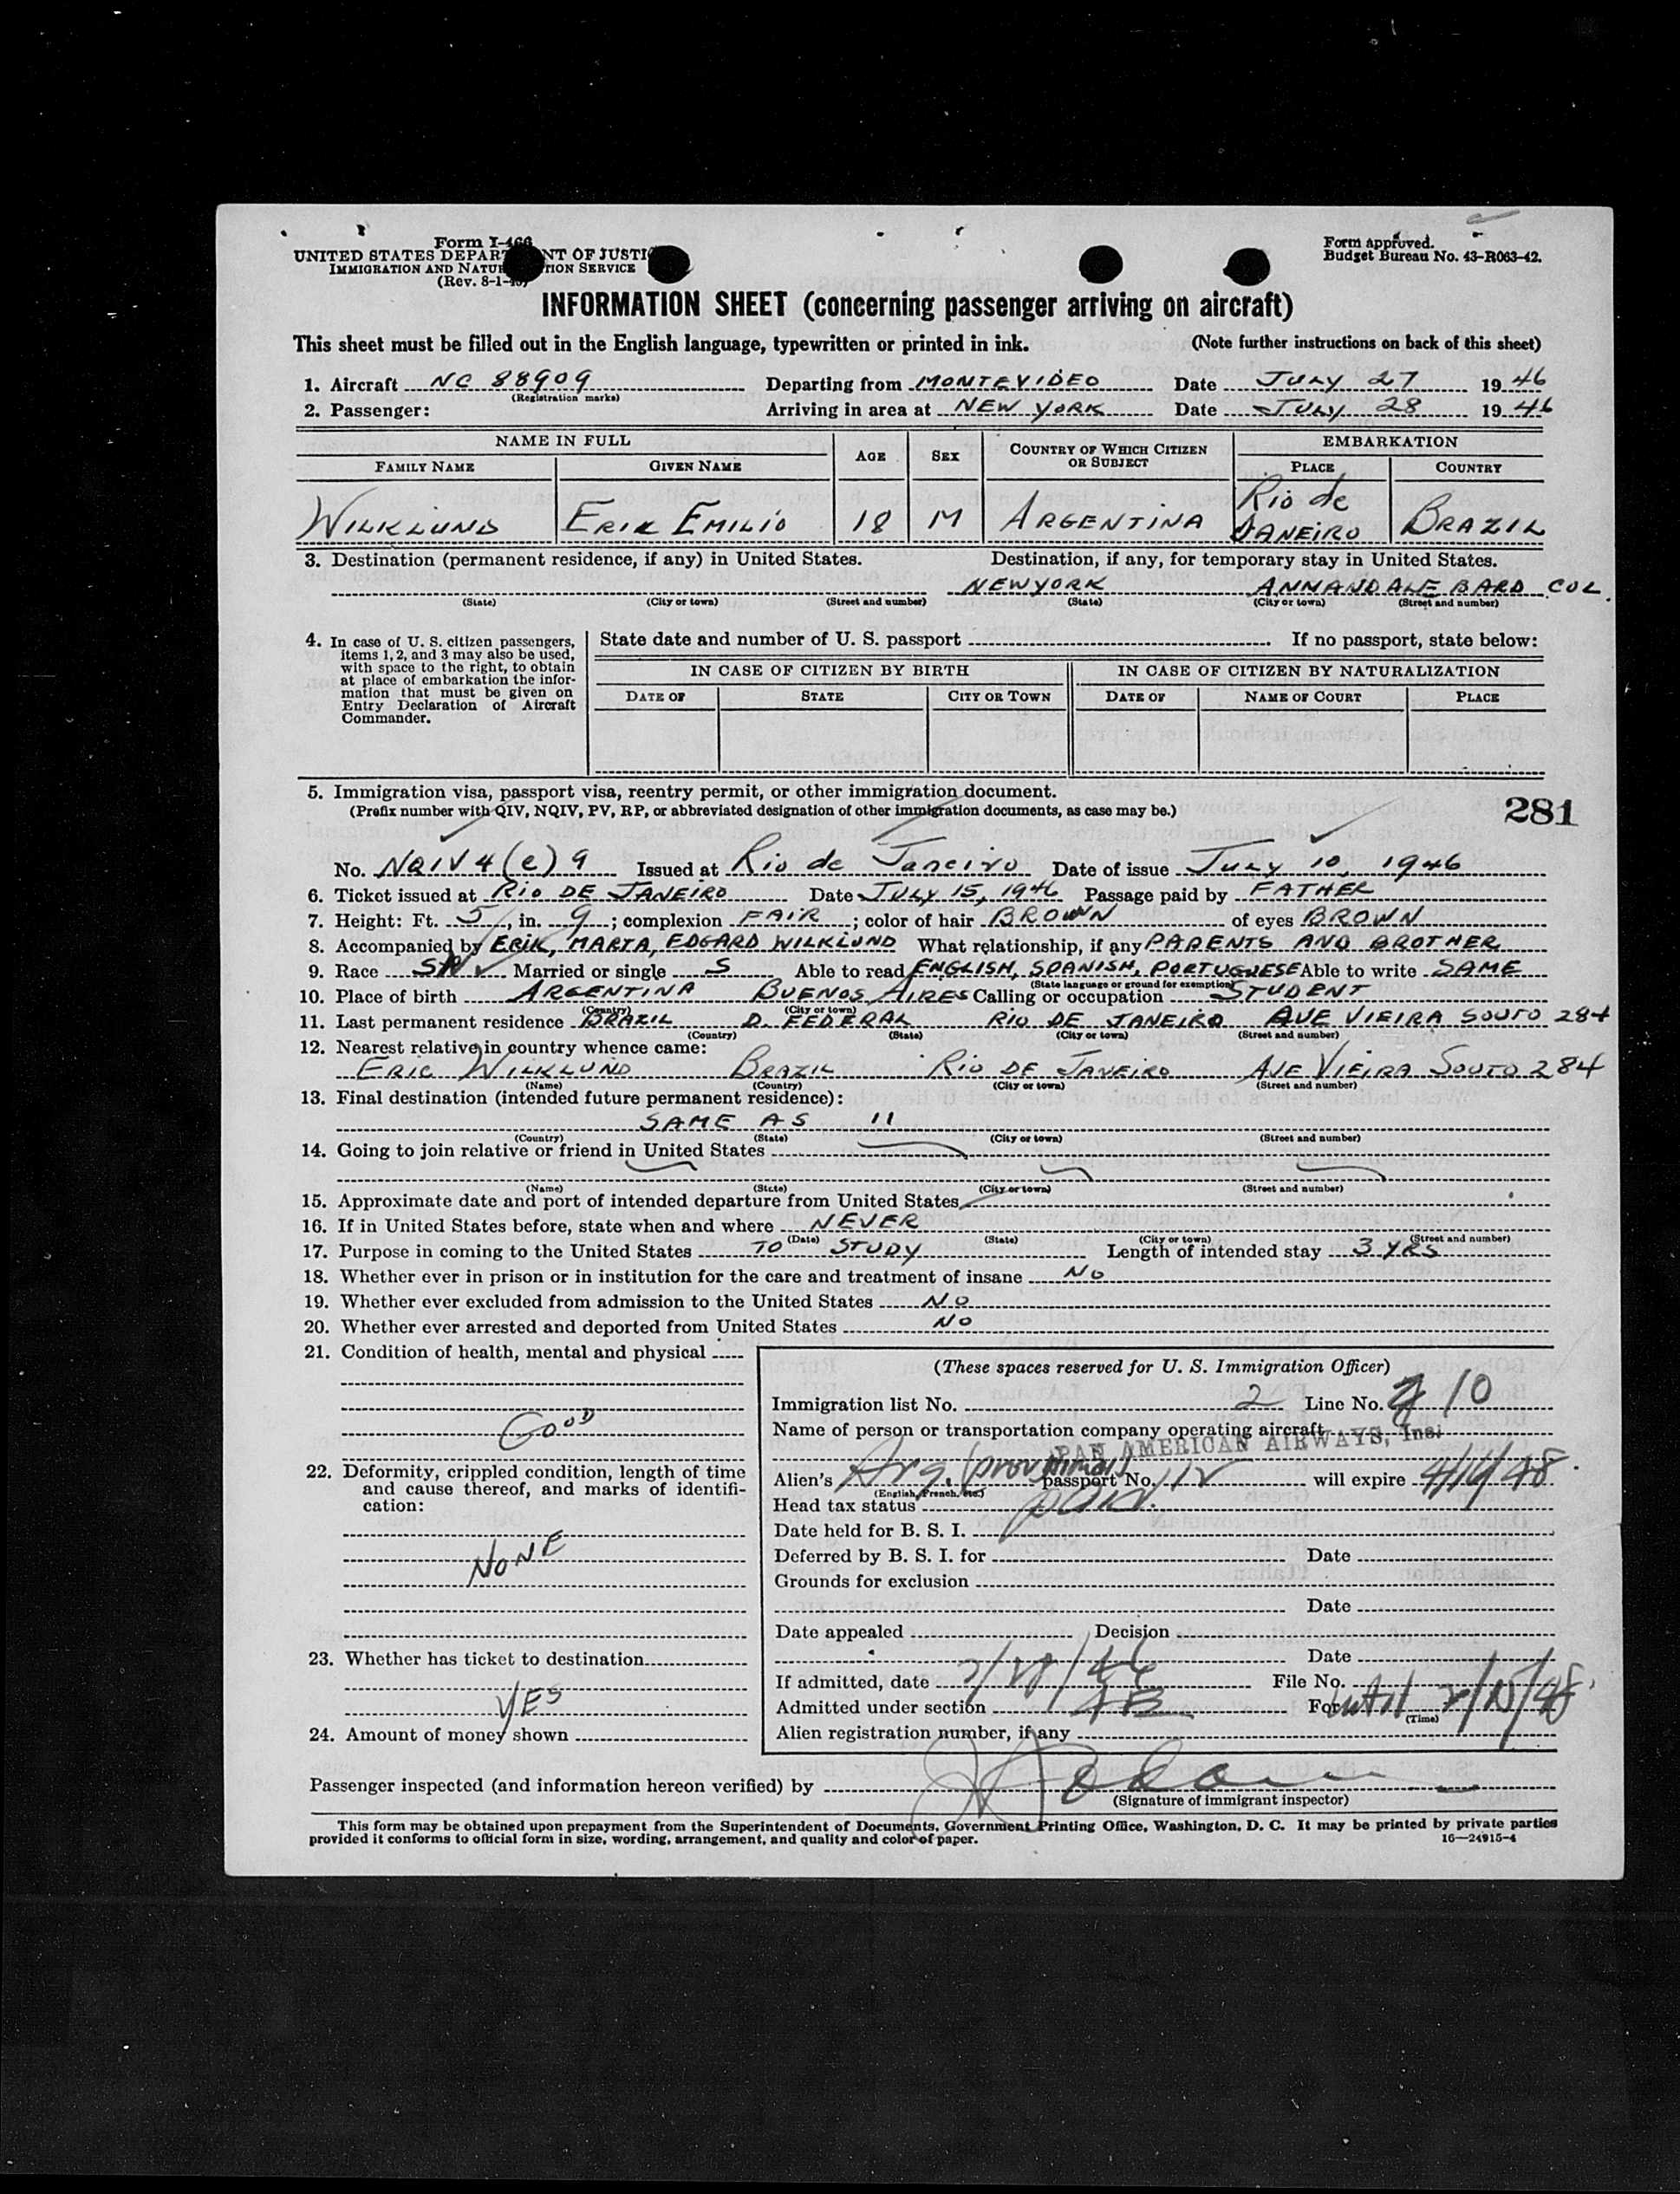 Form I-466
UNITED STATES DEPARTMENT OF JUSTICE
IMMIGRATION AND NATURALIZATION SERVICE
(Rev. 8-1-45)
Form approved.
Budget Bureau No. 43-R063-42.
INFORMATION SHEET (concerning passenger arriving on aircraft)
This sheet must be filled out in the English language, typewritten or printed in ink. (Note further instructions on back of this sheet)
1. Aircraft NC 88909 Departing from MONTEVIDEO Date JULY 27 1946
(Registration marks)
2. Passenger: Arriving in area at NEW YORK Date JULY 28 1946
NAME IN FULL AGE SEX COUNTRY OF WHICH CITIZEN OR SUBJECT EMBARKATION
FAMILY NAME GIVEN NAME PLACE COUNTRY
WILKLUND ERIK EMILIO 18 M ARGENTINA Rio de JANEIRO BRAZIL
3. Destination (permanent residence, if any) in United States. Destination, if any, for temporary stay in United States.
NEWYORK ANNANDALE BARD COL.
(State) (City or town) (Street and number) (State) (City or town) (Street and number)
4. In case of U. S. citizen passengers, items 1, 2, and 3 may also be used, with space to the right, to obtain at place of embarkation the information that must be given on Entry Declaration of Aircraft Commander.
State date and number of U. S. passport If no passport, state below:
IN CASE OF CITIZEN BY BIRTH IN CASE OF CITIZEN BY NATURALIZATION
DATE OF STATE CITY OR TOWN DATE OF NAME OF COURT PLACE
5. Immigration visa, passport visa, reentry permit, or other immigration document.
(Prefix number with QIV, NQIV, PV, RP, or abbreviated designation of other immigration documents, as case may be.)
281
No. NQIV 4(e) 9 Issued at Rio de Janeiro Date of issue July 10, 1946
6. Ticket issued at RIO DE JANEIRO Date JULY 15, 1946 Passage paid by FATHER
7. Height: Ft. 5, in. 9; complexion FAIR; color of hair BROWN of eyes BROWN
8. Accompanied by ERIK, MARTA, EDGARD WILKLUND What relationship, if any PARENTS AND BROTHER
9. Race Married or single S Able to read ENGLISH, SPANISH, PORTUGUESE Able to write SAME
(State language or ground for exemption)
10. Place of birth ARGENTINA BUENOS AIRES Calling or occupation STUDENT
(Country) (City or town)
11. Last permanent residence BRAZIL D. FEDERAL RIO DE JANEIRO AVE VIEIRA SOUTO 284
(Country) (State) (City or town) (Street and number)
12. Nearest relative in country whence came:
ERIC WILKLUND BRAZIL RIO DE JANEIRO AVE VIEIRA SOUTO 284
(Name) (Country) (City or town) (Street and number)
13. Final destination (intended future permanent residence):
SAME AS 11
(Country) (State) (City or town) (Street and number)
14. Going to join relative or friend in United States
(Name) (State) (City or town) (Street and number)
15. Approximate date and port of intended departure from United States
16. If in United States before, state when and where NEVER
(Date) (State) (City or town) (Street and number)
17. Purpose in coming to the United States TO STUDY Length of intended stay 3 YRS
18. Whether ever in prison or in institution for the care and treatment of insane NO
19. Whether ever excluded from admission to the United States NO
20. Whether ever arrested and deported from United States NO
21. Condition of health, mental and physical
GOOD
22. Deformity, crippled condition, length of time and cause thereof, and marks of identification:
NONE
23. Whether has ticket to destination
YES
24. Amount of money shown
(These spaces reserved for U. S. Immigration Officer)
Immigration list No. 2 Line No. 10
Name of person or transportation company operating aircraft
PAN AMERICAN AIRWAYS, Inc.
Alien's Arg. (provisional) passport No. will expire 4/16/48.
(English, French, etc.)
Head tax status paid.
Date held for B. S. I.
Deferred by B. S. I. for Date
Grounds for exclusion
Date
Date appealed Decision
Date
If admitted, date 7/28/46 File No.
Admitted under section 4E For until
(Time)
Alien registration number, if any
Passenger inspected (and information hereon verified) by
(Signature of immigrant inspector)
This form may be obtained upon prepayment from the Superintendent of Documents, Government Printing Office, Washington, D. C. It may be printed by private parties
provided it conforms to official form in size, wording, arrangement, and quality and color of paper. 16—24915-4